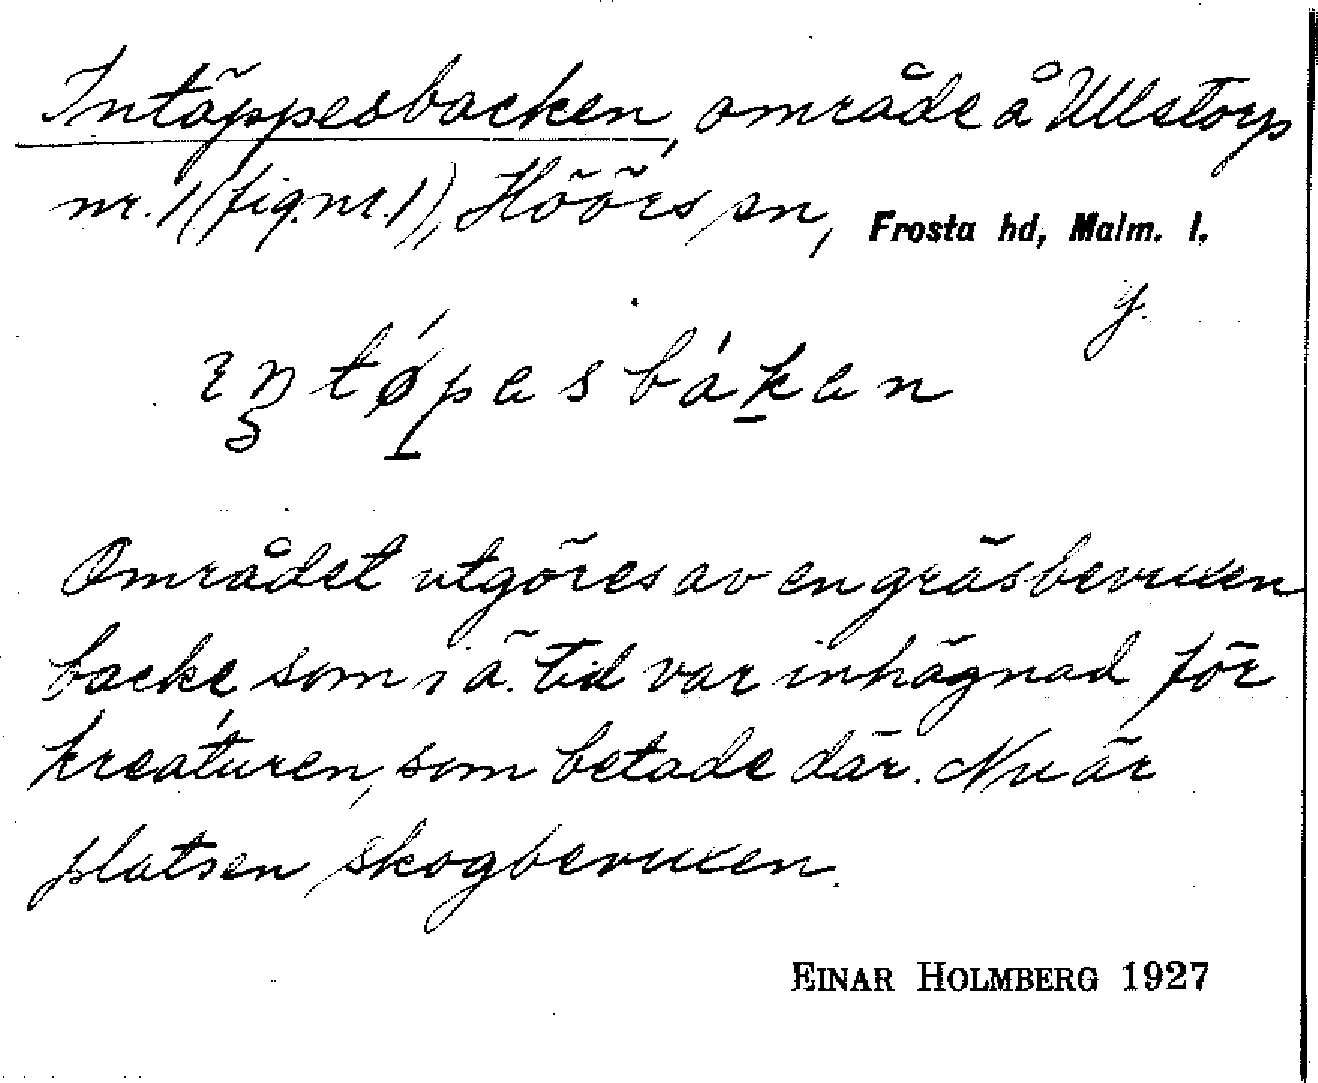 Intäppesbacken, område å Ullstorp
nr. 1 (fig. nr. 1), Höörs sn, Frosta hd, Malm. l.
y.
Området utgöres av en gräsbevuxen
backe, som i ä. tid var inhägnad för
kreaturen, som betade där. Nu är
platsen skogbevuxen.
EINAR HOLMBERG 1927